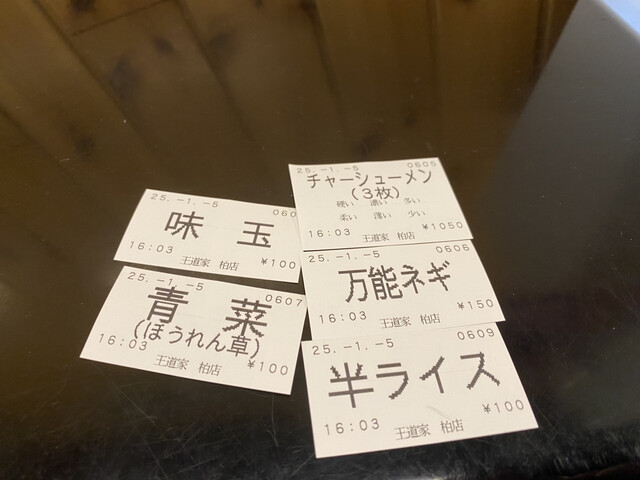 25.-1.-5
060
味 玉
16:03
¥100
王道家 柏店
25.-1.-5
0607
青 菜
(ほうれん草)
16:03
¥100
王道家 柏店
25.-1.-5
0605
チャーシューメン
(3枚)
硬い 濃い 多い
柔い 薄い 少い
16:03
¥1050
王道家 柏店
25.-1.-5
0606
万能ネギ
16:03
¥150
王道家 柏店
25.-1.-5
0609
半ライス
16:03
¥100
王道家 柏店